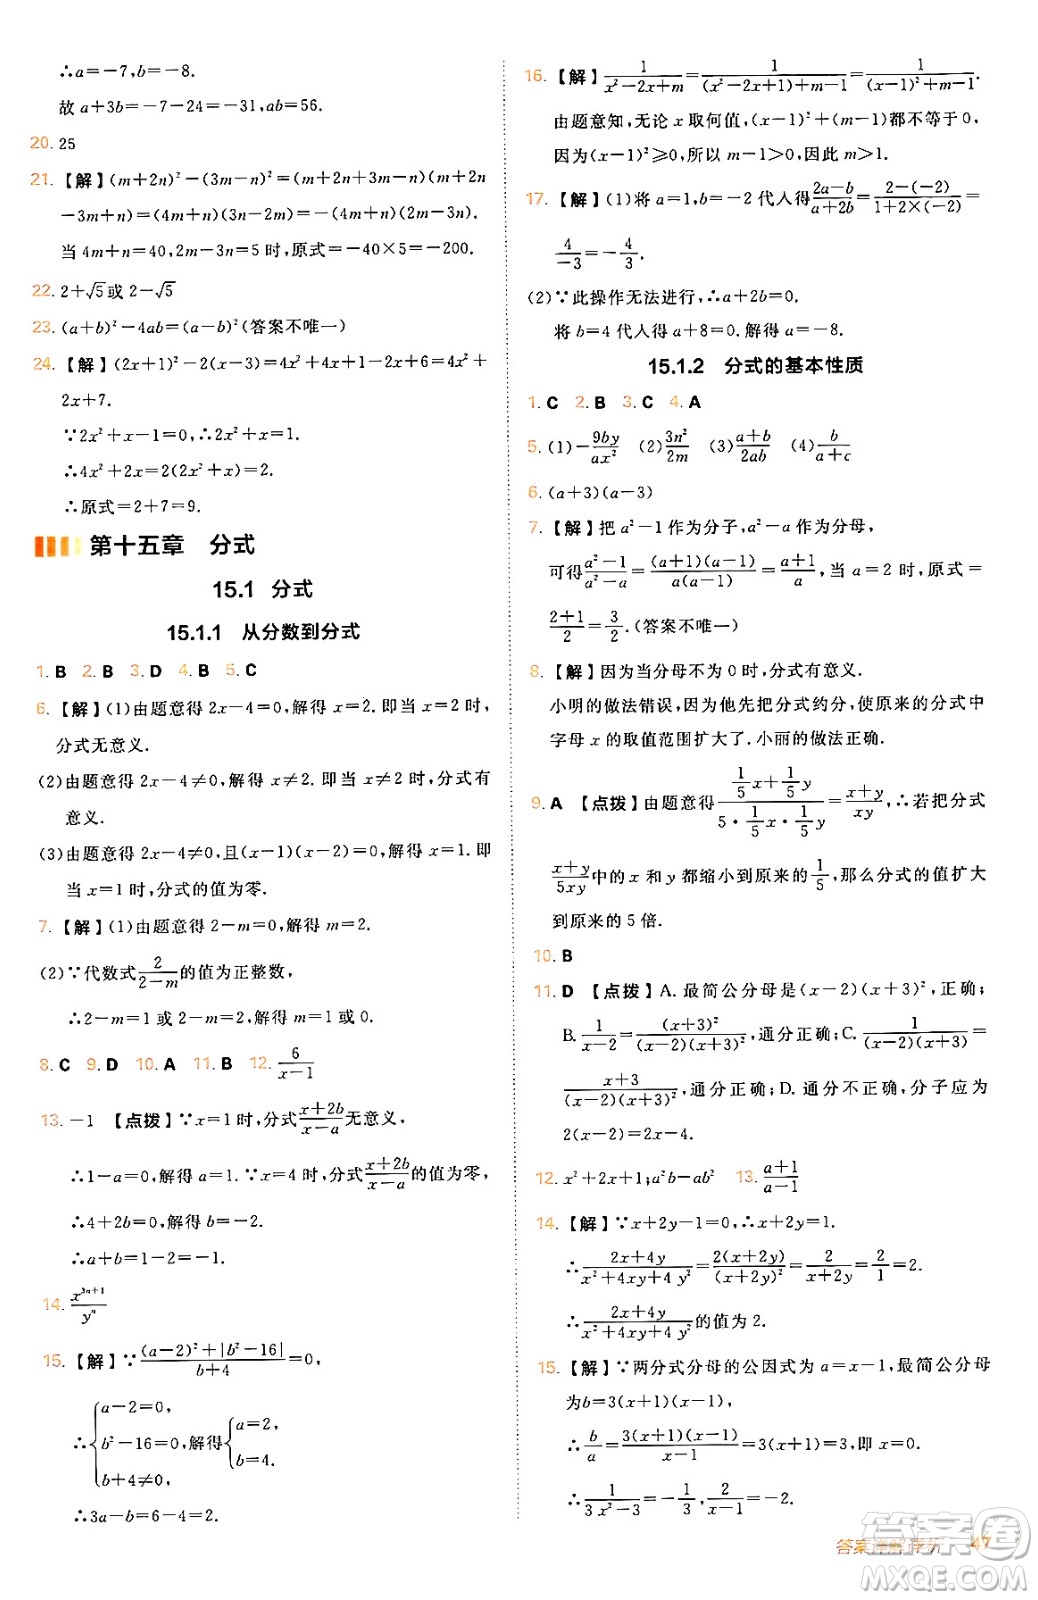 ∴a=-7,b=-8.
故 a+3b=-7-24=-31,ab=56.
20. 25
21.【解】(m+2n)²-(3m-n)²=(m+2n+3m-n)(m+2n
-3m+n)=(4m+n)(3n-2m)=-(4m+n)(2m-3n).
当 4m+n=40,2m-3n=5 时,原式=-40×5=-200.
22. 2+√5或 2-√5
23. (a+b)²-4ab=(a-b)²(答案不唯一)
24.【解】(2x+1)²-2(x-3)=4x²+4x+1-2x+6=4x²+
2x+7.
∵2x²+x-1=0,∴2x²+x=1.
∴4x²+2x=2(2x²+x)=2.
∴原式=2+7=9.
第十五章 分式
15.1 分式
15.1.1 从分数到分式
1. B 2. B 3. D 4. B 5. C
6.【解】(1)由题意得 2x-4=0,解得 x=2.即当 x=2 时,
分式无意义.
(2)由题意得 2x-4≠0,解得 x≠2.即当 x≠2 时,分式有
意义.
(3)由题意得 2x-4≠0,且(x-1)(x-2)=0,解得 x=1.即
当 x=1 时,分式的值为零.
7.【解】(1)由题意得 2-m=0,解得 m=2.
(2)∵代数式2/(2-m)的值为正整数,
∴2-m=1 或 2-m=2,解得 m=1 或 0.
8. C 9. D 10. A 11. B 12. 6/(x-1)
13. -1 【点拨】∵x=1 时,分式(x+2b)/(x-a)无意义,
∴1-a=0,解得 a=1.∵x=4 时,分式(x+2b)/(x-a)的值为零,
∴4+2b=0,解得 b=-2.
∴a+b=1-2=-1.
14. x³ⁿ⁺¹/yⁿ
15.【解】∵((a-2)²+|b²-16|)/(b+4)=0,
∴{a-2=0, b²-16=0, b+4≠0,解得{a=2, b=4.
∴3a-b=6-4=2.
16.【解】1/(x²-2x+m)=1/((x²-2x+1)+m-1)=1/((x-1)²+m-1).
由题意知,无论 x 取何值,(x-1)²+(m-1)都不等于 0,
因为(x-1)²≥0,所以 m-1>0,因此 m>1.
17.【解】(1)将 a=1,b=-2 代入得(2a-b)/(a+2b)=(2-(-2))/(1+2×(-2))=
4/(-3)=-4/3.
(2)∵此操作无法进行,∴a+2b=0.
将 b=4 代入得 a+8=0.解得 a=-8.
15.1.2 分式的基本性质
1. C 2. B 3. C 4. A
5. (1)-9by/ax² (2)3n²/2m (3)(a+b)/2ab (4)b/(a+c)
6. (a+3)(a-3)
7.【解】把 a²-1 作为分子,a²-a 作为分母,
可得(a²-1)/(a²-a)=((a+1)(a-1))/(a(a-1))=(a+1)/a.当 a=2 时,原式=
(2+1)/2=3/2.(答案不唯一)
8.【解】因为当分母不为 0 时,分式有意义.
小明的做法错误,因为他先把分式约分,使原来的分式中
字母 x 的取值范围扩大了.小丽的做法正确.
9. A 【点拨】由题意得(1/5x+1/5y)/(5·1/5x·1/5y)=(x+y)/xy,∴若把分式
(x+y)/5xy中的 x 和 y 都缩小到原来的1/5,那么分式的值扩大
到原来的 5 倍.
10. B
11. D 【点拨】A. 最简公分母是(x-2)(x+3)²,正确;
B. 1/(x-2)=(x+3)²/((x-2)(x+3)²),通分正确;C. 1/((x-2)(x+3))=
(x+3)/((x-2)(x+3)²),通分正确;D. 通分不正确,分子应为
2(x-2)=2x-4.
12. x²+2x+1;a²b-ab² 13. (a+1)/(a-1)
14.【解】∵x+2y-1=0,∴x+2y=1.
∴(2x+4y)/(x²+4xy+4y²)=2(x+2y)/(x+2y)²=2/(x+2y)=2/1=2.
∴(2x+4y)/(x²+4xy+4y²)的值为 2.
15.【解】∵两分式分母的公因式为 a=x-1,最简公分母
为 b=3(x+1)(x-1),
∴b/a=3(x+1)(x-1)/(x-1)=3(x+1)=3,即 x=0.
∴1/(3x²-3)=-1/3,2/(x-1)=-2.
答案详解详析 47
答案圈
MXQE.COM